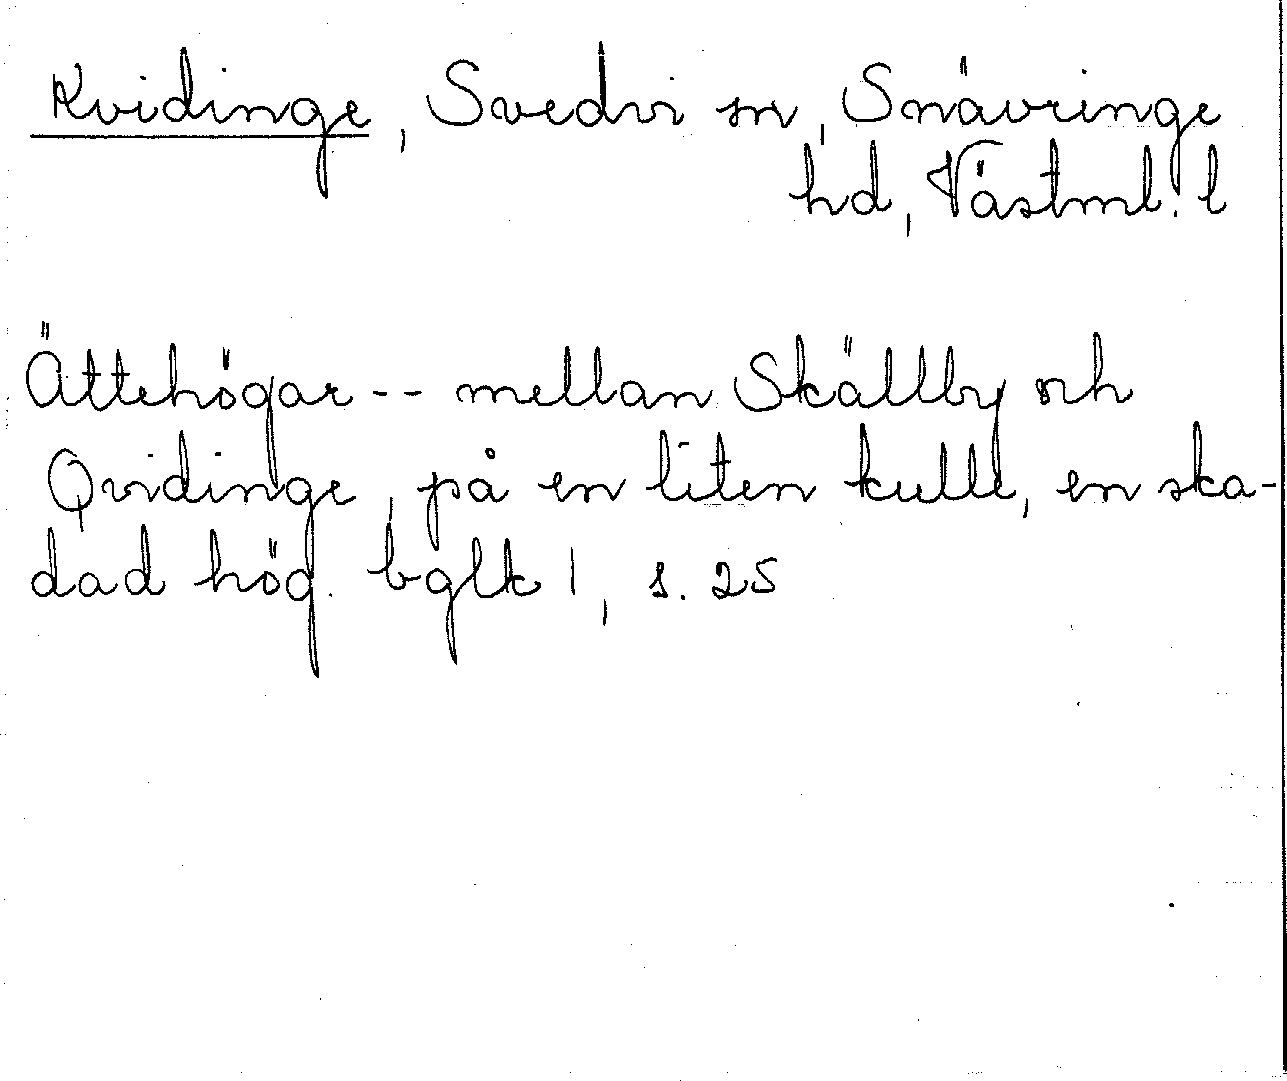 Kvidinge, Svedvi sn, Snävringe
hd, Västml. l
Ättehögar -- mellan Skällby och
Qvidinge, på en liten kulle, en ska-
dad hög. bglk 1, s. 25